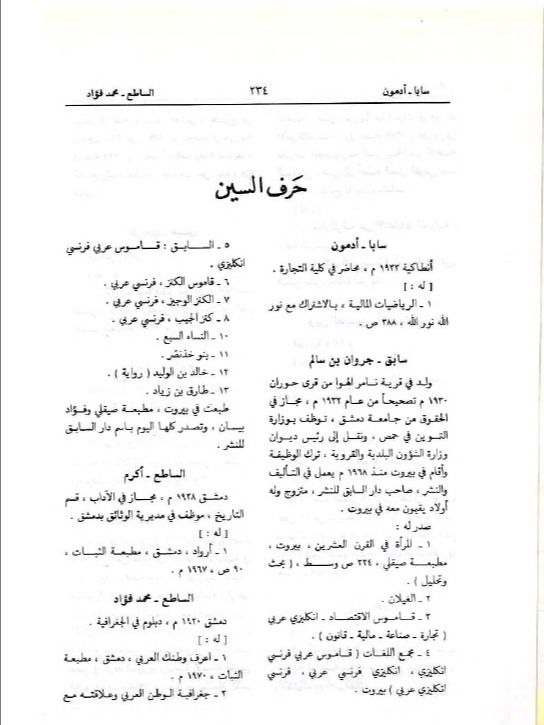 سابا ـ أدمون
٢٣٤
الساطع ـ محمد فؤاد
حَرف السين
سابا ـ أدمون
أنطاكية ١٩٢٢ م ، محاضر في كلية التجارة .
[ له : ]
١ ـ الرياضيات المالية ، بالاشتراك مع نور
الله نور الله ، ٣٨٨ ص .
سابق ـ جروان بن سالم
ولد في قرية نامر الهوا من قرى حوران
١٩٣٠ م تصحيحاً من عام ١٩٣٢ م ، مجاز في
الحقوق من جامعة دمشق ، توظف بوزارة
التموين في حمص ، ونقل إلى رئيس ديوان
وزارة الشؤون البلدية والقروية ، ترك الوظيفة
وأقام في بيروت منذ ١٩٦٨ م يعمل في التأليف
والنشر ، صاحب دار السابق للنشر ، متزوج وله
أولاد يقيمون معه في بيروت .
صدر له :
١ ـ المرأة في القرن العشرين ، بيروت ،
مطبعة صيقلي ، ٢٢٤ ص وسط ، ( بحث
وتحليل ) .
٢ ـ الغيلان .
٣ ـ قاموس الاقتصاد ـ انكليزي عربي
( تجارة ـ صناعة ـ مالية ـ قانون ) .
٤ ـ مجمع اللغات ( قاموس عربي فرنسي
انكليزي ، انكليزي فرنسي عربي ، فرنسي
انكليزي عربي ) بيروت .
٥ ـ السابق : قاموس عربي فرنسي
انكليزي .
٦ ـ قاموس الكنز ، فرنسي عربي .
٧ ـ الكنز الوجيز ، فرنسي عربي .
٨ ـ كنز الجيب ، فرنسي عربي .
١٠ ـ النساء السبع .
١١ ـ بنو خذنصر .
١٢ ـ خالد بن الوليد ( رواية ) .
١٣ ـ طارق بن زياد .
طبعت في بيروت ، مطبعة صيقلي وفؤاد
بيسان ، وتصدر كلها اليوم باسم دار السابق
للنشر .
الساطع ـ أكرم
دمشق ١٩٣٨ م ، مجاز في الآداب ، قسم
التاريخ ، موظف في مديرية الوثائق بدمشق .
[ له : ]
١ ـ أرواد ، دمشق ، مطبعة الثبات ،
٩٠ ص ، ١٩٦٧ م .
الساطع ـ محمد فؤاد
دمشق ١٩٢٠ م ، دبلوم في الجغرافية .
[ له : ]
١ ـ اعرف وطنك العربي ، دمشق ، مطبعة
الثبات ، ١٩٧٠ م .
٢ ـ جغرافية الوطن العربي وعلاقته مع